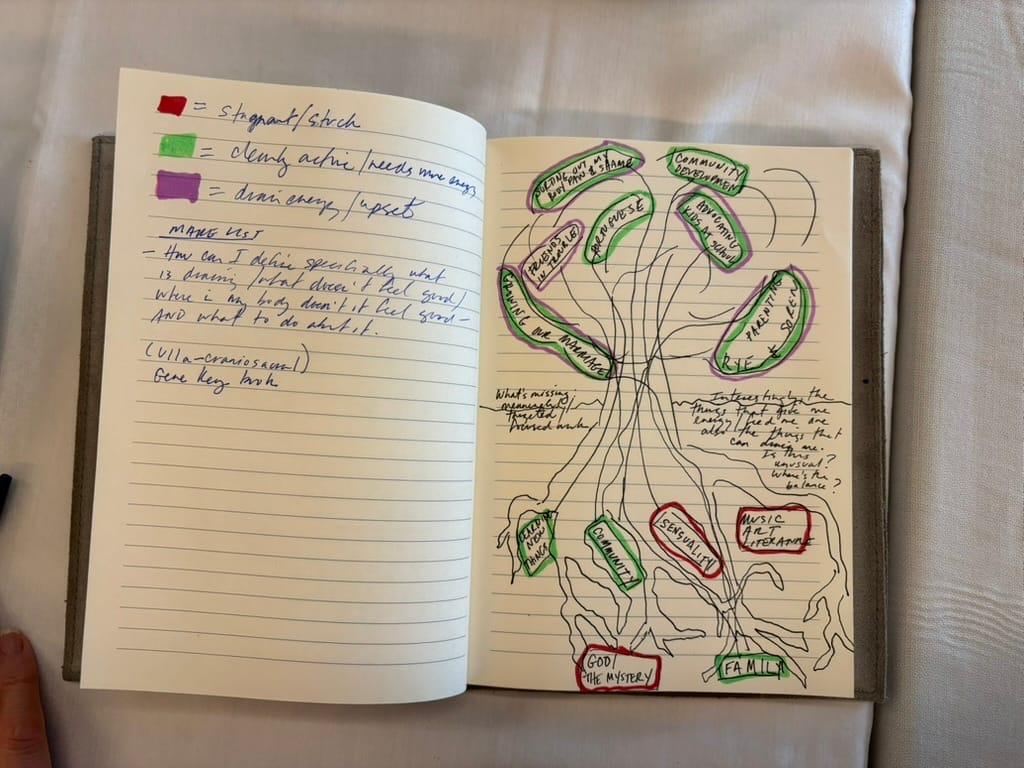 = stagnant/stuck
= clearly active/needs more energy
= drain energy/upset
MAKE LIST
- How can I define specifically what
is draining/what doesn't feel good/
where in my body doesn't it feel good -
AND what to do about it.
(Ulla-craniosacral)
Gene Key book
WORKING OUT MY
BODY PAIN & SHAME
COMMUNITY
DEVELOPMENT
FRIENDS
IN TROUBLE
PORTUGUESE
ADVOCATING
KIDS AT SCHOOL
GROWING OUR MARRIAGE
PARENTING
RYE & SOREN
What's missing
meaningful/
targeted
focused work
Interestingly the
things that give me
energy/feed me are
also the things that
can drain me.
Is this
unusual?
Where's the
balance?
NEW
THINGS
COMMUNITY
SENSUALITY
MUSIC
ART
LITERATURE
GOD/
THE MYSTERY
FAMILY